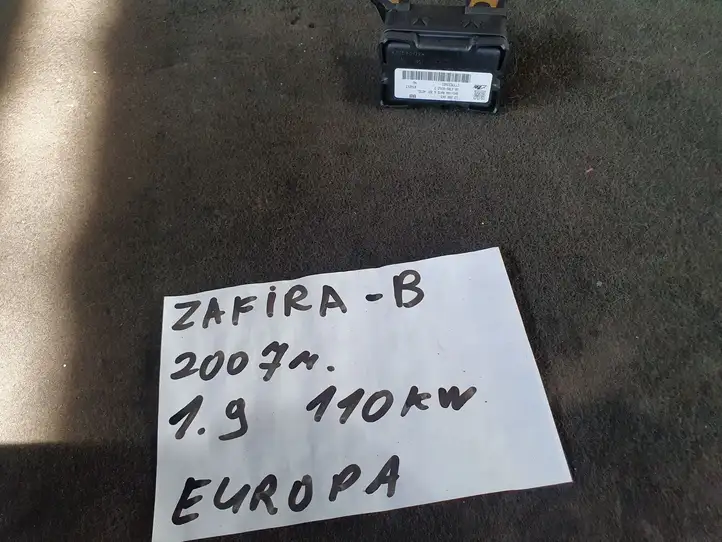 ZAFIRA - B
2007 м.
1.9 110 KW
EUROPA